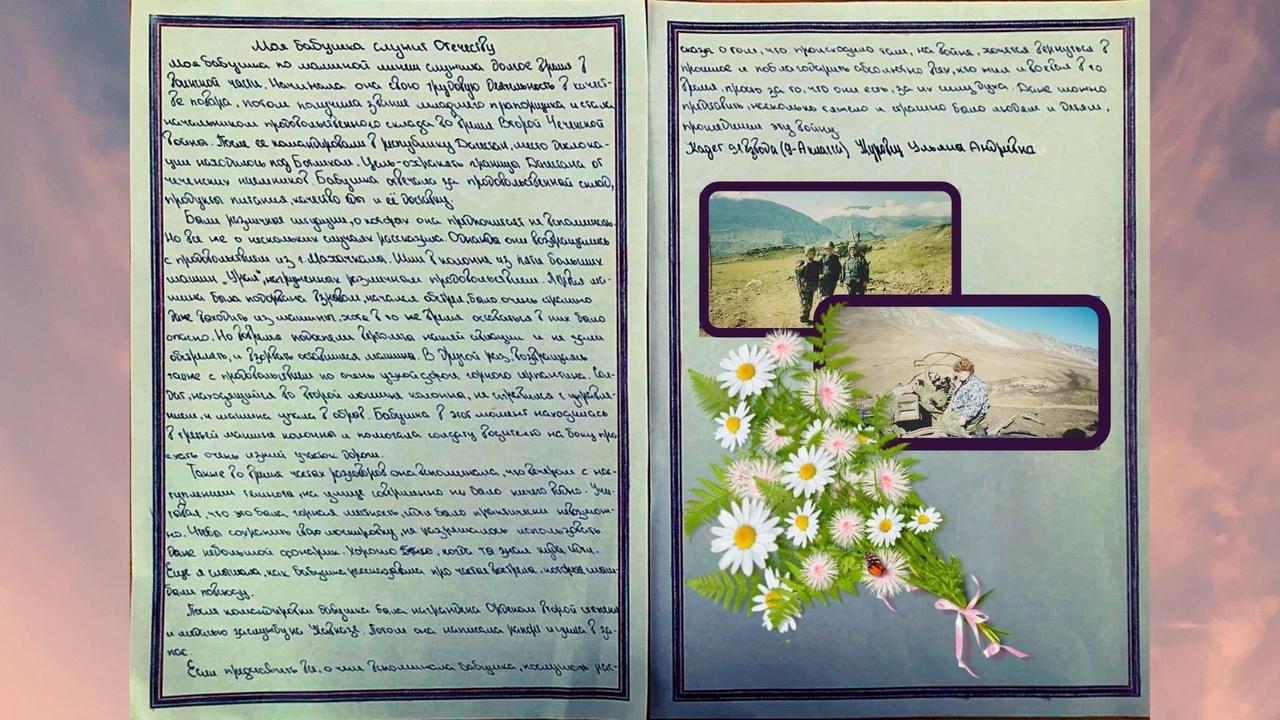 Моя бабушка служит Отечеству
Моя бабушка по маминой линии служила долгое время в
военной части. Начинала она свою трудовую деятельность в качест-
ве повара, потом получила звание младшего прапорщика и стала
начальником продовольственного склада во время Второй Чеченской
войны. После её командировали в республику Дагестан, место дислока-
ции находилось под Ботлихом. Цель-охранять границу Дагестана от
чеченских наёмников. Бабушка отвечала за продовольственный склад,
продукты питания, качество еды и её доставку.
Были различные ситуации, о которых она предпочитает не вспоминать.
Но всё же о нескольких случаях рассказала. Однажды они возвращались
с продовольствием из г. Махачкала. Шли в колонне из пяти больших
машин "Урал", нагруженной различным продовольствием. Первая ма-
шина была подорвана взрывом, начался обстрел, было очень страшно
даже выходить из машины, хотя в то же время оставаться в них было
опасно. Но вовремя подоспели вертолёты нашей авиации и не дали
обстрелять, и взорвать оставшиеся машины. В другой раз, возвращаясь
также с продовольствием по очень узкой дороге горного серпантина, сол-
дат, находящийся во второй машине колонны, не справился с управле-
нием, и машина упала в обрыв. Бабушка в этот момент находилась
в третьей машине колонны и помогала солдату водителю на боку про
ехать очень узкий участок дороги.
Также во время наших разговоров она вспоминала, что вечером с нас-
туплением темноты, на улице совершенно не было ничего видно. Учи-
тывая, что это была горная местность, идти было практически невозмож-
но. Чтобы сохранить свою маскировку, не разрешалось использовать
даже небольшой фонарик. Хорошо было, когда ты знал куда идти.
Ещё я слышала, как бабушка рассказывала про частые выстрелы, которые слыш
были повсюду.
После командировки бабушка была награждена Орденом второй степени
и медалью за службу на Кавказе. Потом она написала рапорт и ушла в за-
пас.
Если представить всё, о чём вспоминала бабушка, послушать рас-
сказы о том, что происходило там, на войне, хочется вернуться в
прошлое и поблагодарить абсолютно всех, кто жил и воевал в то
время, просто за то, что они есть, за их силу духа. Даже можно
представить, насколько тяжело и страшно было людям и детям,
прошедшим эту войну.
Кадет 91 взвода (9-А класса) Ульяна Андреевна